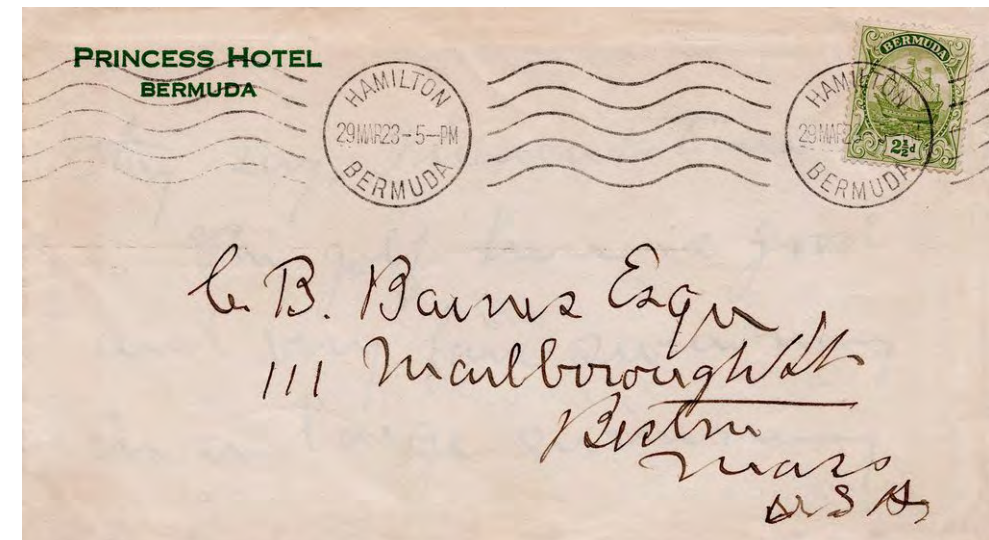 PRINCESS HOTEL
BERMUDA
HAMILTON
29MAR23-5-PM
BERMUDA
HAMILTON
29MAR2
BERMUDA
BERMUDA
2½d
C. B. Barnes Esqre
111 Marlborough St
Boston
Mass
U S A